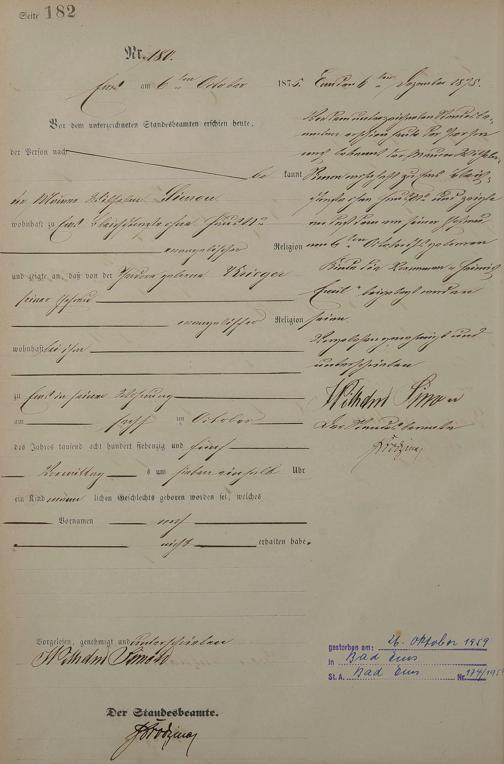 Seite 182
Nr. 180.
Ems am 6ten October 1875.
Vor dem unterzeichneten Standesbeamten erschien heute,
der Person nach
be kannt,
der Maurer Wilhelm Simon
wohnhaft zu Ems
evangelischer Religion
und zeigte an, daß von der geborene Krieger
seiner Ehefrau
evangelischer Religion
wohnhaft bei ihm
zu Ems in seiner Wohnung
am sechsten October
des Jahres tausend acht hundert siebenzig und fünf
Vormittags um sieben einhalb Uhr
ein Kind männlichen Geschlechts geboren worden sei, welches
Vornamen noch
nicht erhalten habe.
Vorgelesen, genehmigt und unterschrieben
Wilhelm Simon
Der Standesbeamte.
Ems den 6ten Dezember 1875.
Vor dem unterzeichneten Standesbe-
amten erschien heute der Person
nach bekannt der Maurer Wilhelm
Simon wohnhaft zu Ems
und zeigte
an daß dem von seiner Ehefrau
am 6ten October geborenen
Kinde die Vornamen Heinrich
Emil beigelegt worden
seien
Vorgelesen genehmigt und
unterschrieben
Wilhelm Simon
Der Standesbeamte
gestorben am: 26. Oktober 1959
in Bad Ems
St. A. Bad Ems Nr. 174/1959